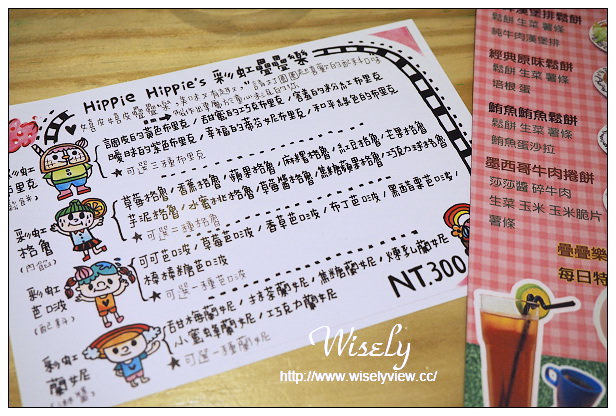 Hippie Hippie's 彩虹疊疊樂
調皮的黃色布里克 / 甜蜜的紅色布里克 / 害羞的粉紅布里克
曖昧的紫色布里克 / 幸福的蒂芬妮布里克 / 和平綠色的布里克
★可選三種布里克
布里克
(鬆餅)
草莓格魯 / 香蕉格魯 / 蘋果格魯 / 麻糬格魯 / 紅豆格魯 / 芒果格魯
芋泥格魯 / 水蜜桃格魯 / 草莓醬格魯 / 焦糖蘋果格魯 / 巧克力球格魯
★可選二種格魯
彩虹
格魯
(內餡)
可可芭啵 / 草莓芭啵 / 香草芭啵 / 布丁芭啵 / 黑醋栗芭啵
棒棒糖芭啵
★可選一種芭啵
彩虹
芭啵
(配料)
甜梅蘭妮 / 抹茶蘭妮 / 焦糖蘭妮 / 煉乳蘭妮
小蜜蜂蘭妮 / 巧克力蘭妮
★可選一種蘭妮
彩虹
蘭妮
NT.300
漢堡排鬆餅
鬆餅 生菜 薯條
純牛肉漢堡排
經典原味鬆餅
鬆餅 生菜 薯條
培根 蛋
鮪魚鮪魚鬆餅
鬆餅 生菜 薯條
鮪魚蛋沙拉
墨西哥牛肉捲餅
莎莎醬 碎牛肉
生菜 玉米 玉米脆片
薯條
疊疊樂
每日特
Wisely
http://www.wiselyview.cc/